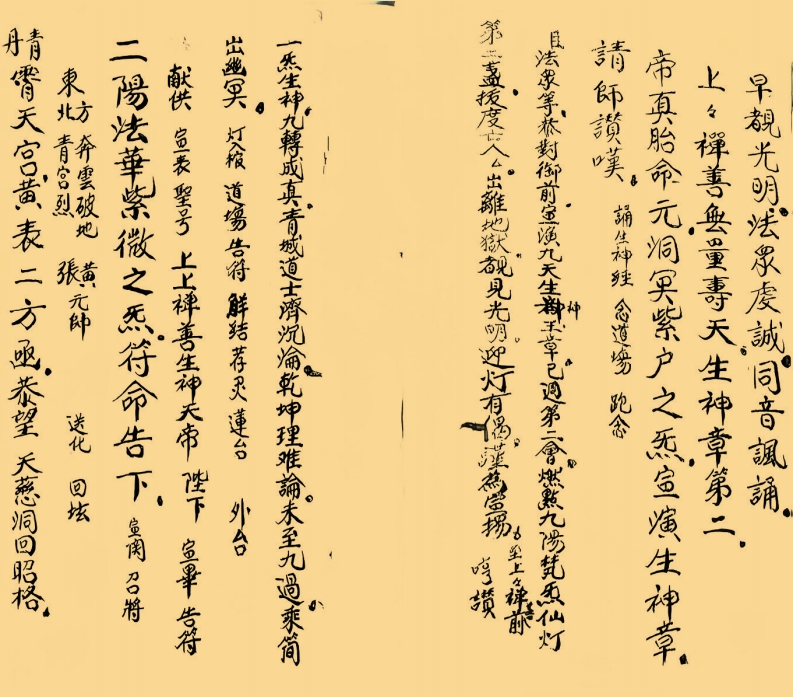 早覩光明法眾虔誠同音諷誦
上々禪善無量壽天生神章第二
帝真胎命元洞冥紫户之炁宣演生神章
請師讃嘆 誦生神經 念道場 跪念
法眾等恭對御前宣演九天生神玉章已週第二會燃點九陽梵炁仙灯
第二盞拔度亡人么出離地獄覩見光明迎灯有偈謹為宣揚 至上々禪前 哼讃
一炁生神九轉成真青城道士濟沉淪乾坤理难論未至九過乘简
出幽冥 灯入棺 道場告符 解結荐灵 蓮台 外台
献供 宣表聖号 上上禅善生神天帝 陛下 宣畢 告符
二陽法華紫微之炁符命告下 宣関 召將
東北方 青宮烈 奔雲破地 張黃元帥 送化 回坛
青丹霄天宫黄表二方亟恭望 天慈洞回昭格